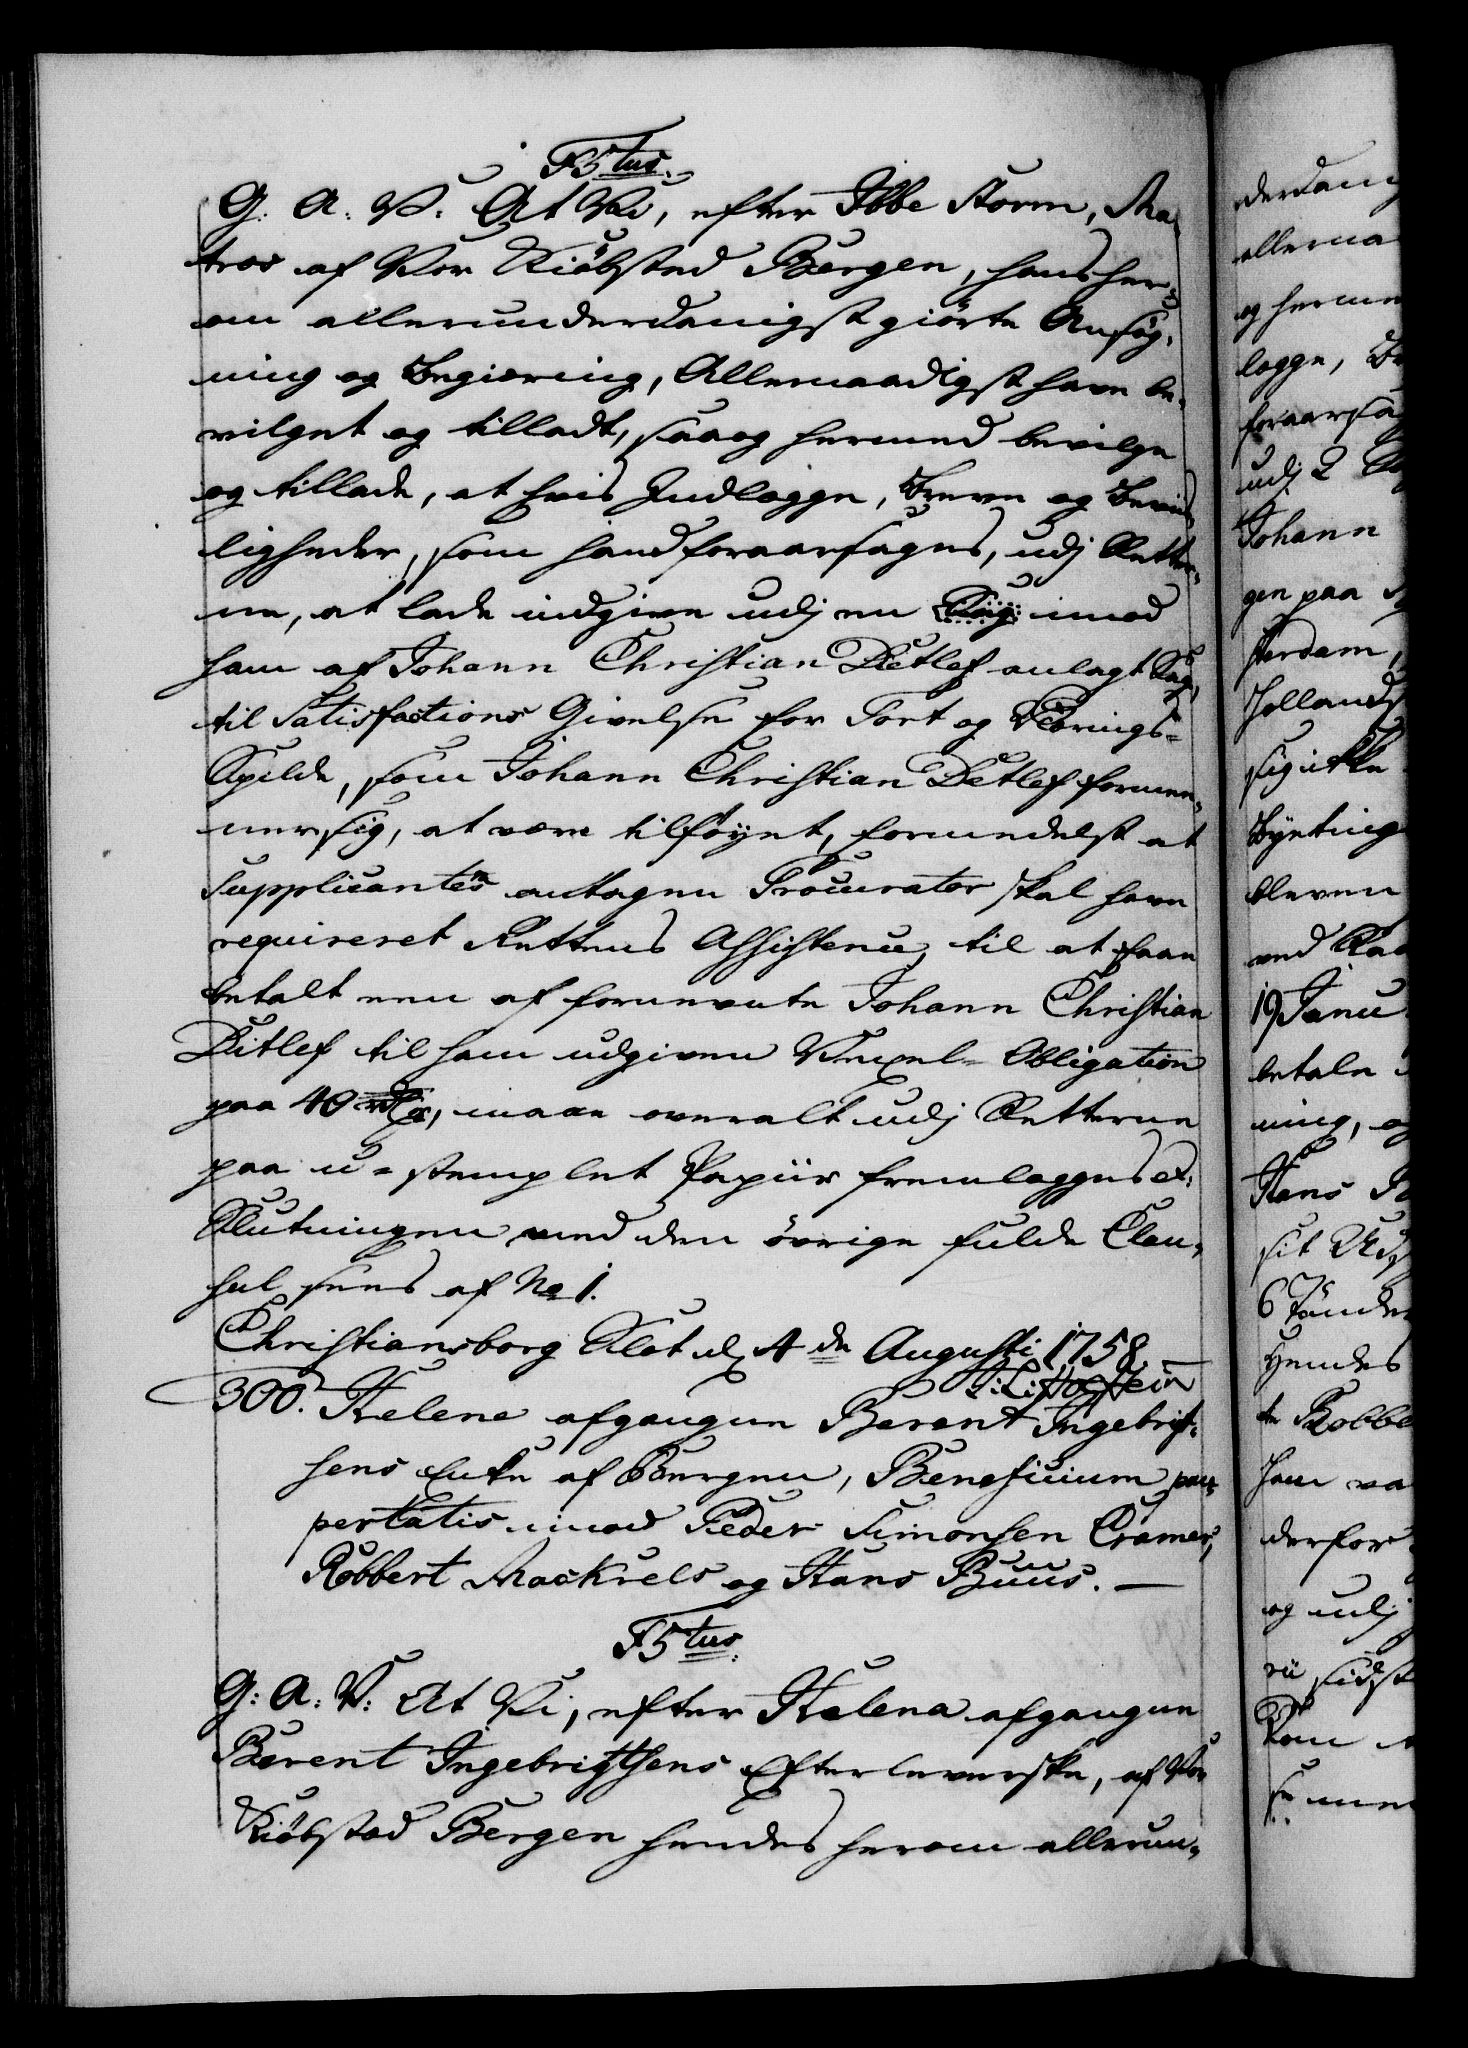 F5tus.
G. A. V. At Vi, efter Ibbe Storm, Ma-
tros af Vor Kiöbstad Bergen, hans her-
om allerunderdanigst giörte Ansög-
ning og Begiæring, Allernaadigst have be-
vilget og tilladt, saa og hermed bevilge
og tillade, at hvis Indlægge, Breve og Bevis-
ligheder, som hand foraarsages, udj Retter-
ne, at lade udgive udj en Sag imod
ham af Johann Christian Detlef anlagt Sag,
til Satisfactions Givelse for Tort og Værings-
Spilde, som Johann Christian Detlef formee-
ner sig, at være tilföyet, formedelst at
Supplicantens antagen Procurator skal have
requireret Rettens Assistence, til at faae
betalt een af fornevnte Johann Christian
Ditlef til ham udgiven Vexel-Obligation
paa 40 rdr, maae overalt udj Retterne
paa u-stemplet Papiir fremlægges etc.
Slutningen med den övrige fulde Clau-
sul sees af No 1.
Christiansborg Slot d. 4de Augusti 1758
300. Helene afgangne Berent Ingebrigt-
sens Enke af Bergen, Beneficium pau-
pertatis imod Peder Simonsen Cramer,
Robbert Mackrels og Hans Buus. —
F5tus.
G: A: V: At Vi, efter Helena afgangne
Berent Ingebrigtsens Efterleverske, af Vor
Kiöbstad Bergen hendes herom allerun-
derdanig
allerna
og herme
lægge,
foraarsag
udj 2
Johann
gen paa
sterdam,
Hollands
sig ikke
Bytting
bleven
ved
19 Janu
betale
ning, og
Hans
sit
6
hendes
Robbe
ham
derfor
og udj
sidst